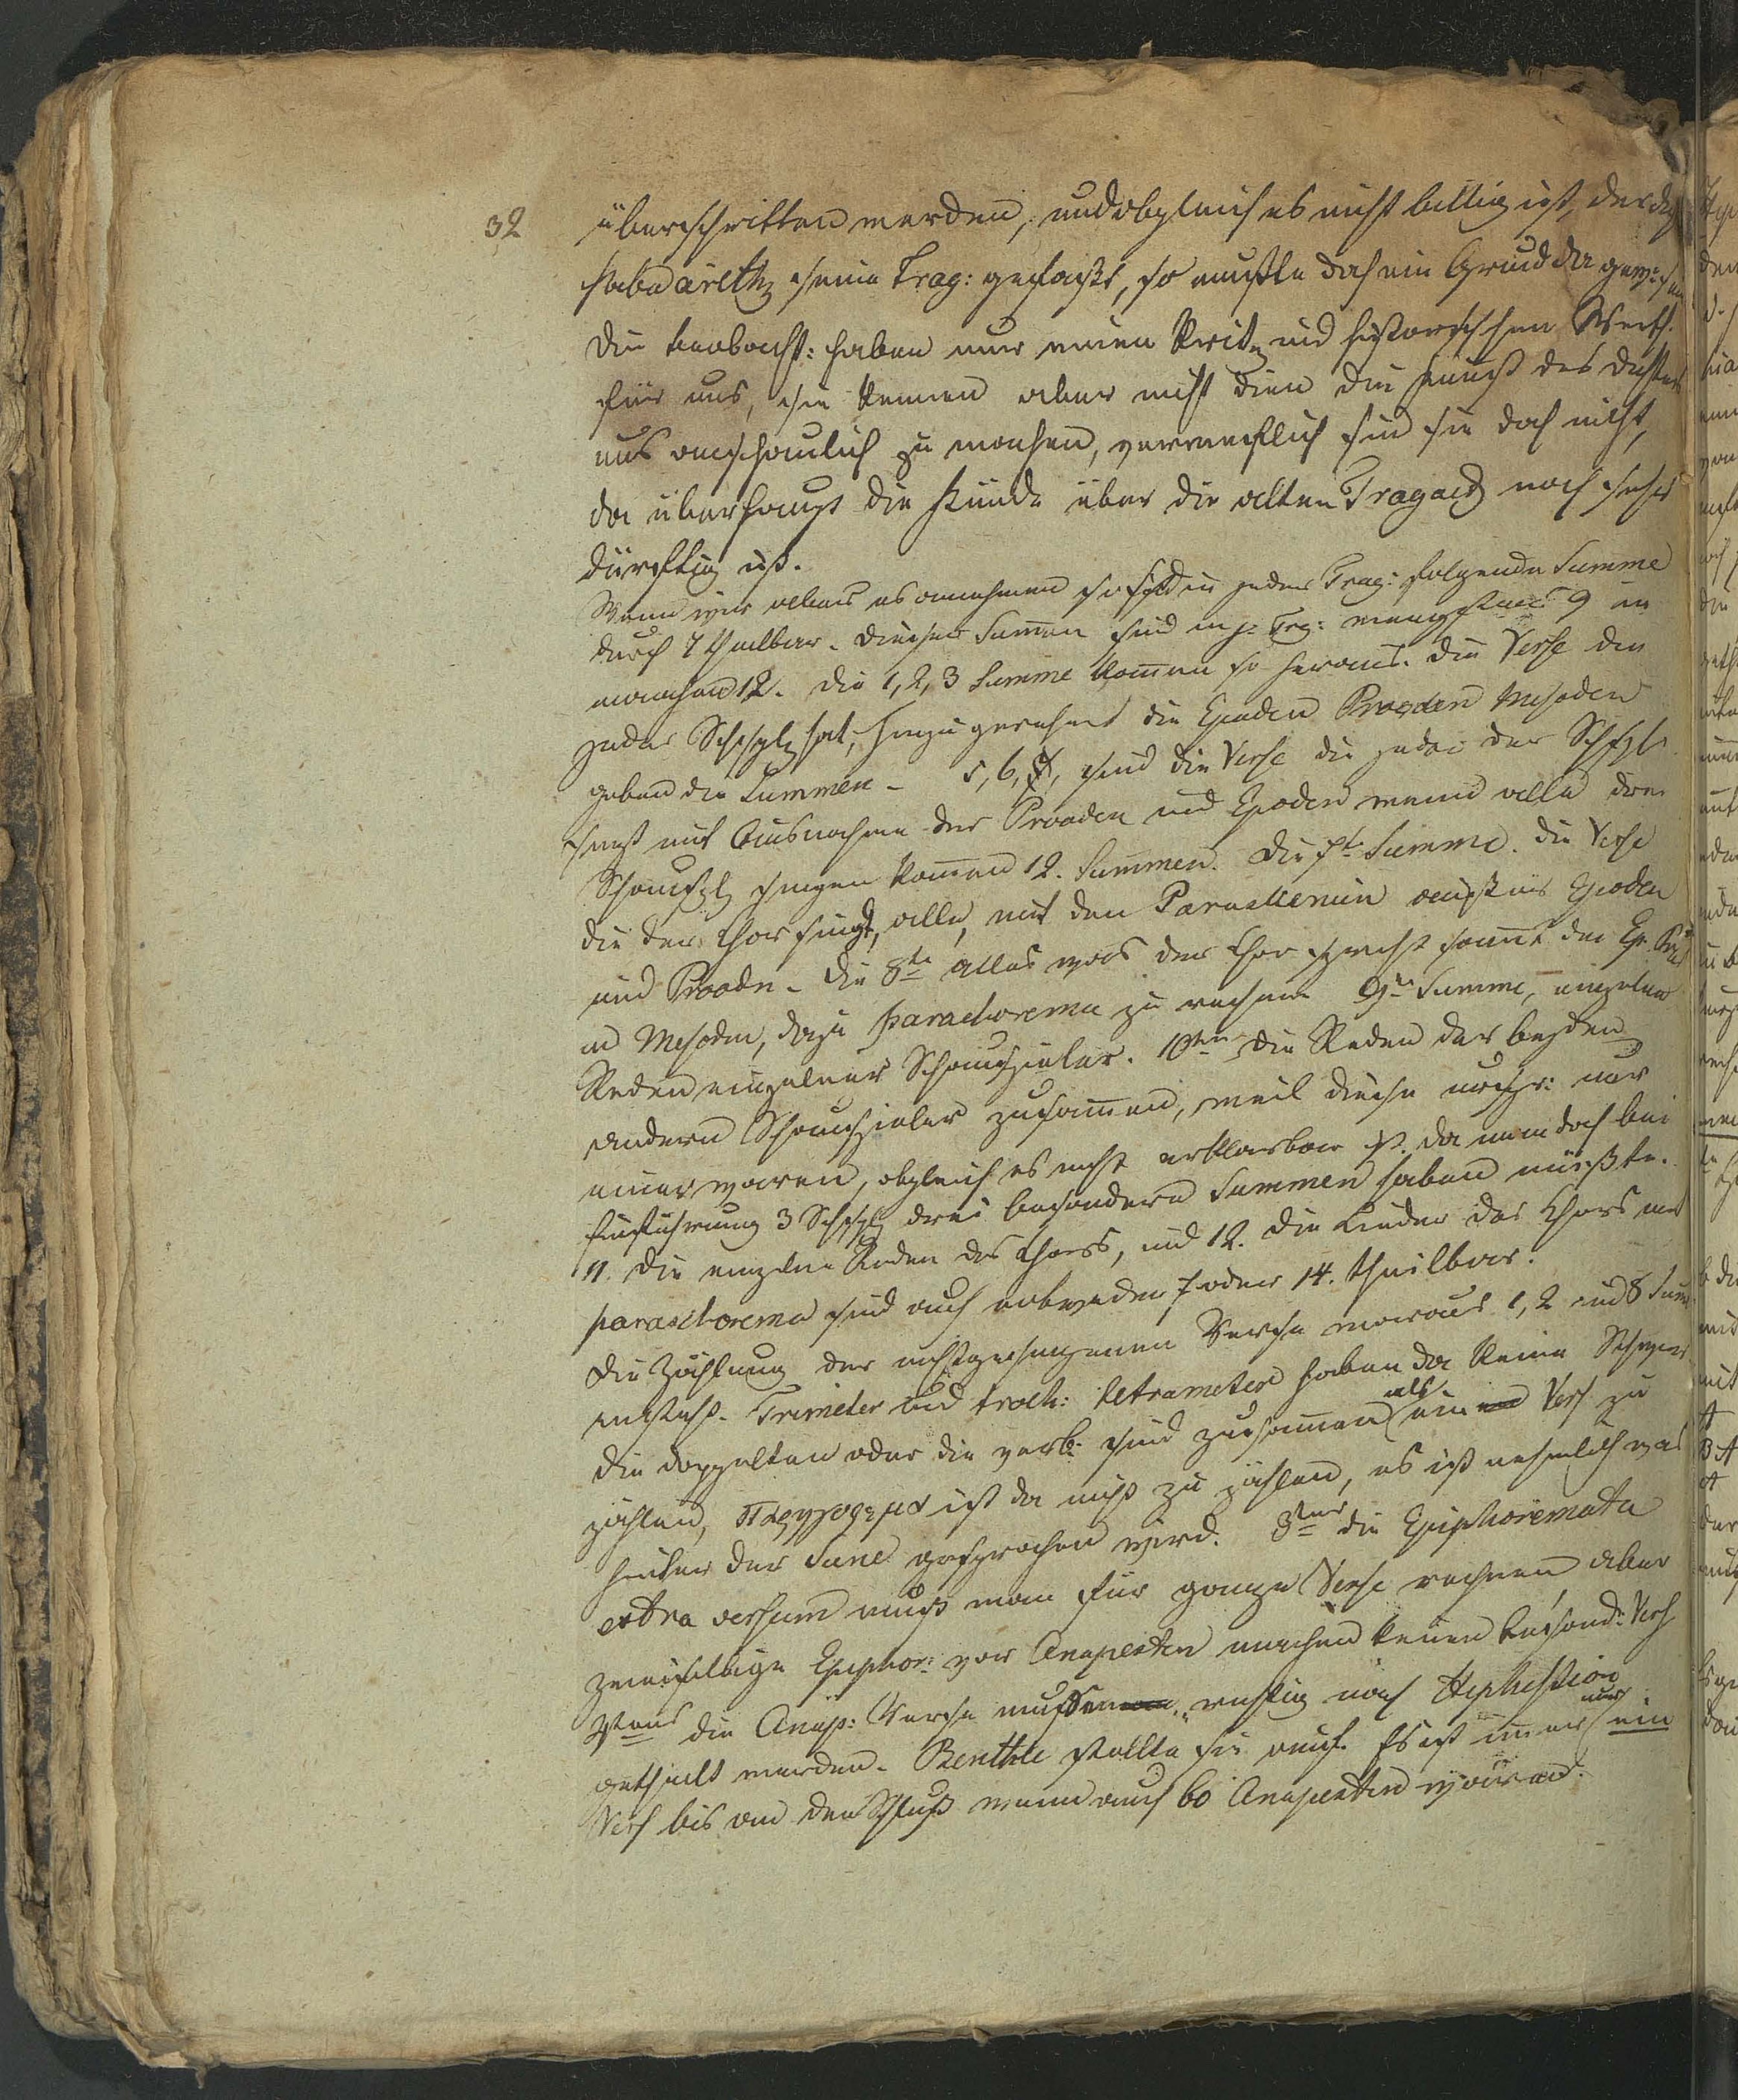 32
überschritten werden, und obgleich es nicht billig ist, der
habe arithm seine Trag: gefaßt, so mußte doch ein Grund da gewesen
die beobacht: haben nur einen Krit und historischen Werth
für uns, sie können aber nicht dien die Kunst des Dichters
uns anschaulich zu machen, verwerflich sind sie doch nicht,
da überhaupt die Kunde über die alten Tragoed noch sehr
dürftig ist.
Wenn wir alles es annehmen so sind in jeder Trag: folgende Summe
durch 7 theilbar. dieser Summen sind in j: Trg: wenigstens 9 in
manchen 12. die 1, 2, 3 Summe kommen so heraus. die Verse die
jeder Schspl hat, hinzugerechnet die Epoden Prooden Mesoden
geben die Summen - 5, 6, sind die Verse die jeder der Schspl
singt mit Ausnahme der Prooden und Epoden wenn alle drei
Schauspl singen kommen 12. Summen. Die 7te Summe. die Verse
die der Chor singt, alle, mit den außer Epoden
und Prooden. die 8te alles was der Chor spricht sammt den Ep.
und Mesoden, dazu parachorema zu rechnen 9te Summe, einzelne
Reden einzelner Schauspieler. 10ten die Reden der beyden
andern Schauspieler zusammen, weil diese urspr: nur
einer waren, obgleich es nicht erklärbar ist. da man doch bei
Einführung 3 Schspl drei besondere Summen haben müßte.
11. die einzelne Reden des Chors, und 12. die Lieder des Chors mit
parachorema sind auch entweder 7 oder 14. theilbar.
Die Zählung der nichtgesungenen Verse woraus 1, 2 und 8 Sum
entsteht. Trimeter und troch: tetrameter haben da keine Schwier
die doppelten oder die verk. sind zusammen als ein Vers zu
zählen, ist da nicht zu zählen, es ist nehmlich was
hinter der Scene gesprochen wird. 3tens die Epiphoremata
extra versum muß man für ganze Verse rechnen aber
zweisilbige Epiphor: vor Anapesten machen keinen besond: Vers
die Anap: Verse mussen richtig nach Hephestion
getheilt werden. Benthle stellte sie auf. Es ist immer nur ein
Vers bis an den Schluß wenn auch 60 Anapesten wären.